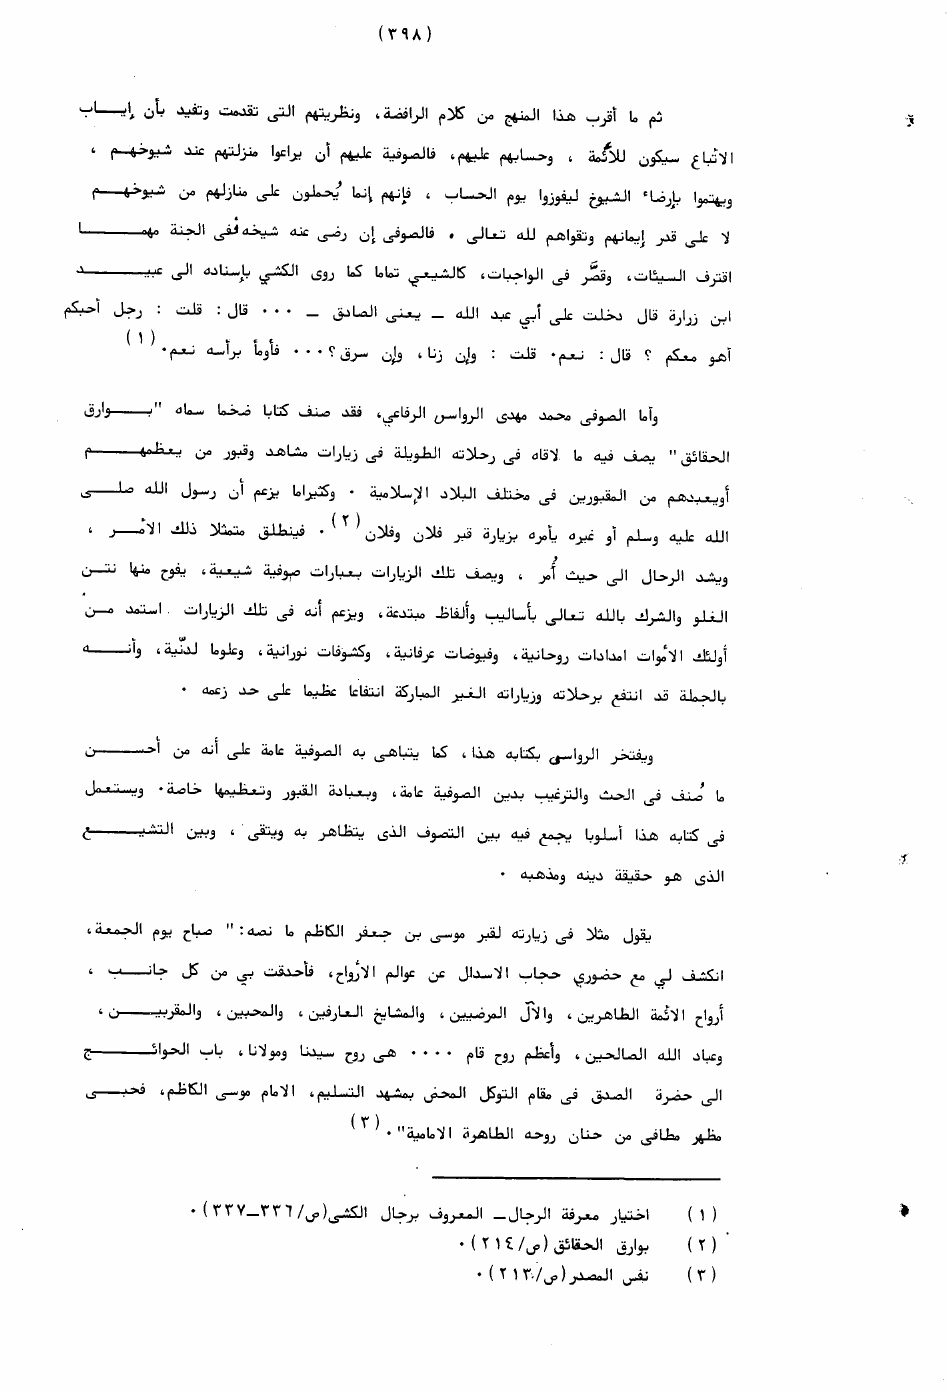 (٣٩٨)
ثم ما أقرب هذا المنهج من كلام الرافضة، ونظريتهم التى تقدمت وتفيد بأن إيــــاب
الاتباع سيكون للأئمة ، وحسابهم عليهم، فالصوفية عليهم أن يراعوا منزلتهم عند شيوخهــم ،
ويهتموا بإرضاء الشيوخ ليفوزوا يوم الحساب ، فإنهم إنما يُحملون على منازلهم من شيوخهــــم
لا على قدر إيمانهم وتقواهم لله تعالى . فالصوفى إن رضى عنه شيخه ففى الجنة مهمــــــــا
اقترف السيئات، وقصَّر فى الواجبات، كالشيعي تماما كما روى الكشي بإسناده الى عبيــــــــد
ابن زرارة قال دخلت على أبي عبد الله ــ يعنى الصادق ــ ... قال: قلت : رجل أحبكم
أهو معكم ؟ قال: نعم. قلت : وإن زنا، وإن سرق؟... فأومأ برأسه نعم.(١)
وأما الصوفى محمد مهدى الرواس الرفاعي، فقد صنف كتابا ضخما سماه "بـــــوارق
الحقائق" يصف فيه ما لاقاه فى رحلاته الطويلة فى زيارات مشاهد وقبور من يعظمهــــــم
أويعبدهم من المقبورين فى مختلف البلاد الإسلامية . وكثيراما يزعم أن رسول الله صلــى
الله عليه وسلم أو غيره يأمره بزيارة قبر فلان وفلان(٢). فينطلق متمثلا ذلك الأمــر ،
ويشد الرحال الى حيث أُمر ، ويصف تلك الزيارات بعبارات صوفية شيعية، يفوح منها نتــن
الغلو والشرك بالله تعالى بأساليب وألفاظ مبتدعة، ويزعم أنه فى تلك الزيارات استمد مــن
أولئك الأموات امدادات روحانية، وفيوضات عرفانية، وكشوفات نورانية، وعلوما لدنّية، وأنـــه
بالجملة قد انتفع برحلاته وزياراته الغير المباركة انتفاعا عظيما على حد زعمه .
ويفتخر الرواس بكتابه هذا، كما يتباهى به الصوفية عامة على أنه من أحســــن
ما صُنف فى الحث والترغيب بدين الصوفية عامة، وبعبادة القبور وتعظيمها خاصة. ويستعمل
فى كتابه هذا أسلوبا يجمع فيه بين التصوف الذى يتظاهر به ويتقى ، وبين التشيــــع
الذى هو حقيقة دينه ومذهبه .
يقول مثلا فى زيارته لقبر موسى بن جعفر الكاظم ما نصه:" صباح يوم الجمعة،
انكشف لي مع حضوري حجاب الاسدال عن عوالم الأرواح، فأحدقت بي من كل جانــب ،
أرواح الائمة الطاهرين، والآل المرضيين، والمشايخ العارفين، والمحبين، والمقربيــــن،
وعباد الله الصالحين، وأعظم روح قام .... هى روح سيدنا ومولانا، باب الحوائـــــج
الى حضرة الصدق فى مقام التوكل المحض بمشهد التسليم، الامام موسى الكاظم، فحبـــى
مظهر مطافى من حنان روحه الطاهرة الامامية".(٣)
(١) اختيار معرفة الرجال ــ المعروف برجال الكشى(ص/٣٣٦ــ٣٣٧).
(٢) بوارق الحقائق(ص/٢١٤).
(٣) نفس المصدر(ص/٢١٣).